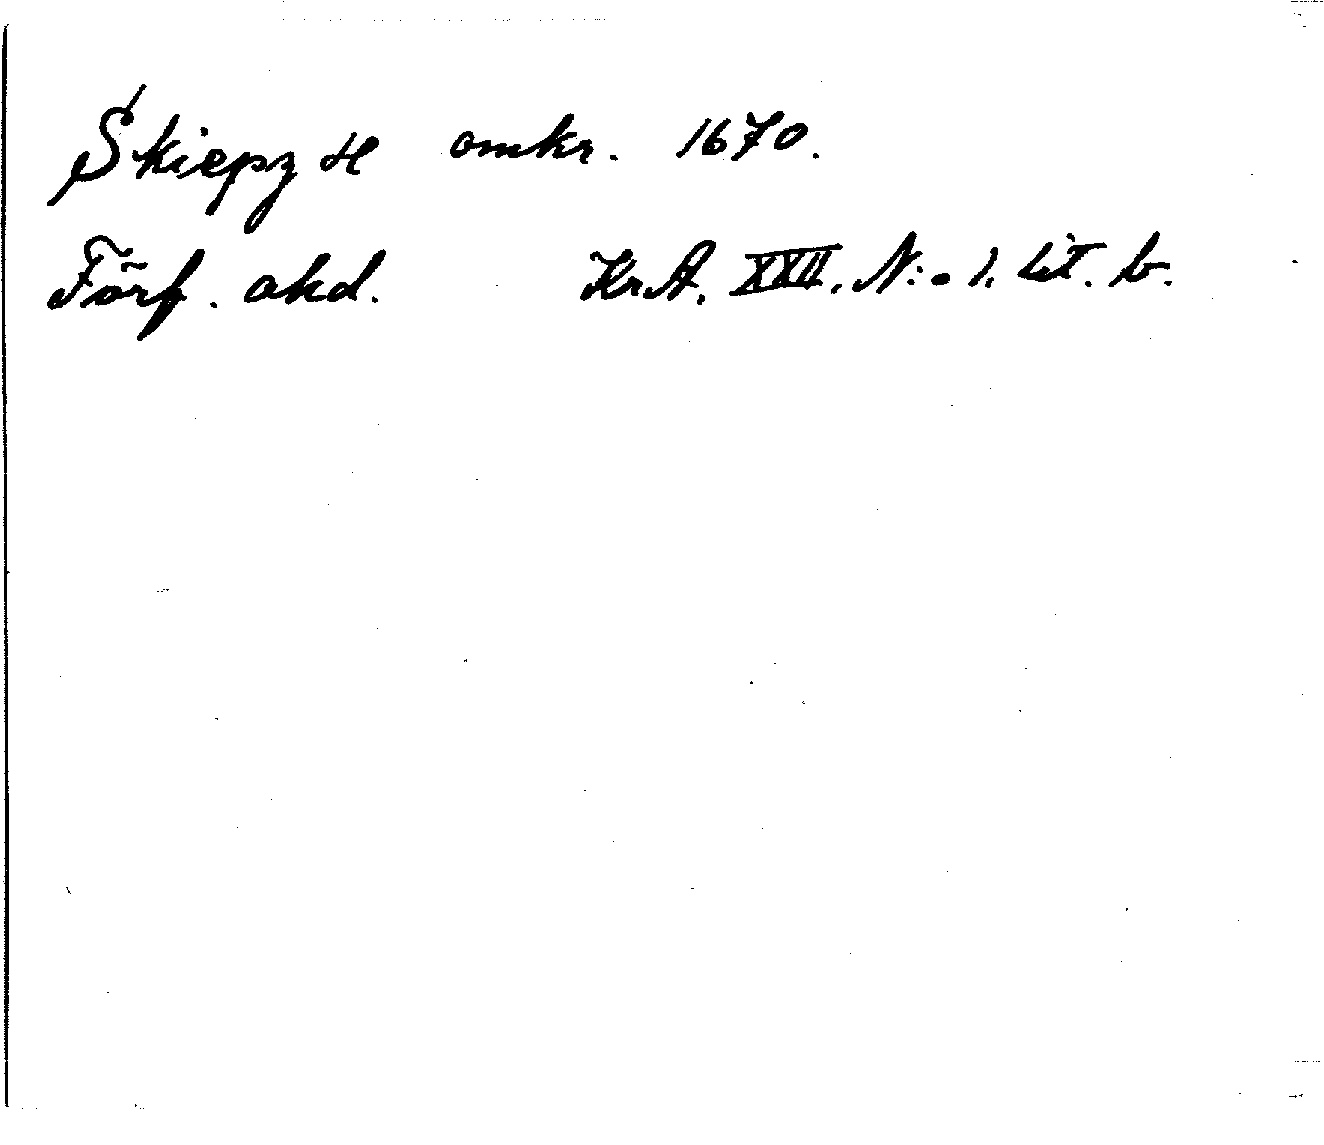 Skiepz H omkr. 1670.
Förf. okd. Kr A. XXII. N:o 1. lit. b.